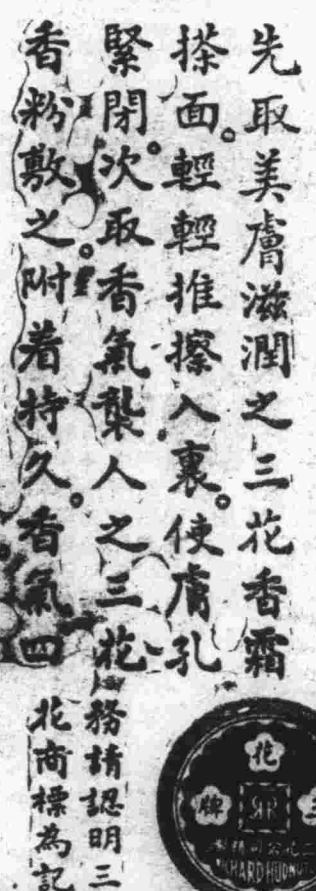 先取美膚滋潤之三花香霜
搽面。輕輕推擦入裏。使膚孔
緊閉。次取香氣襲人之三花
香粉敷之。附着持久。香氣四
務請認明三
花商標為記
花
牌
三
RICHARD HUDNUT